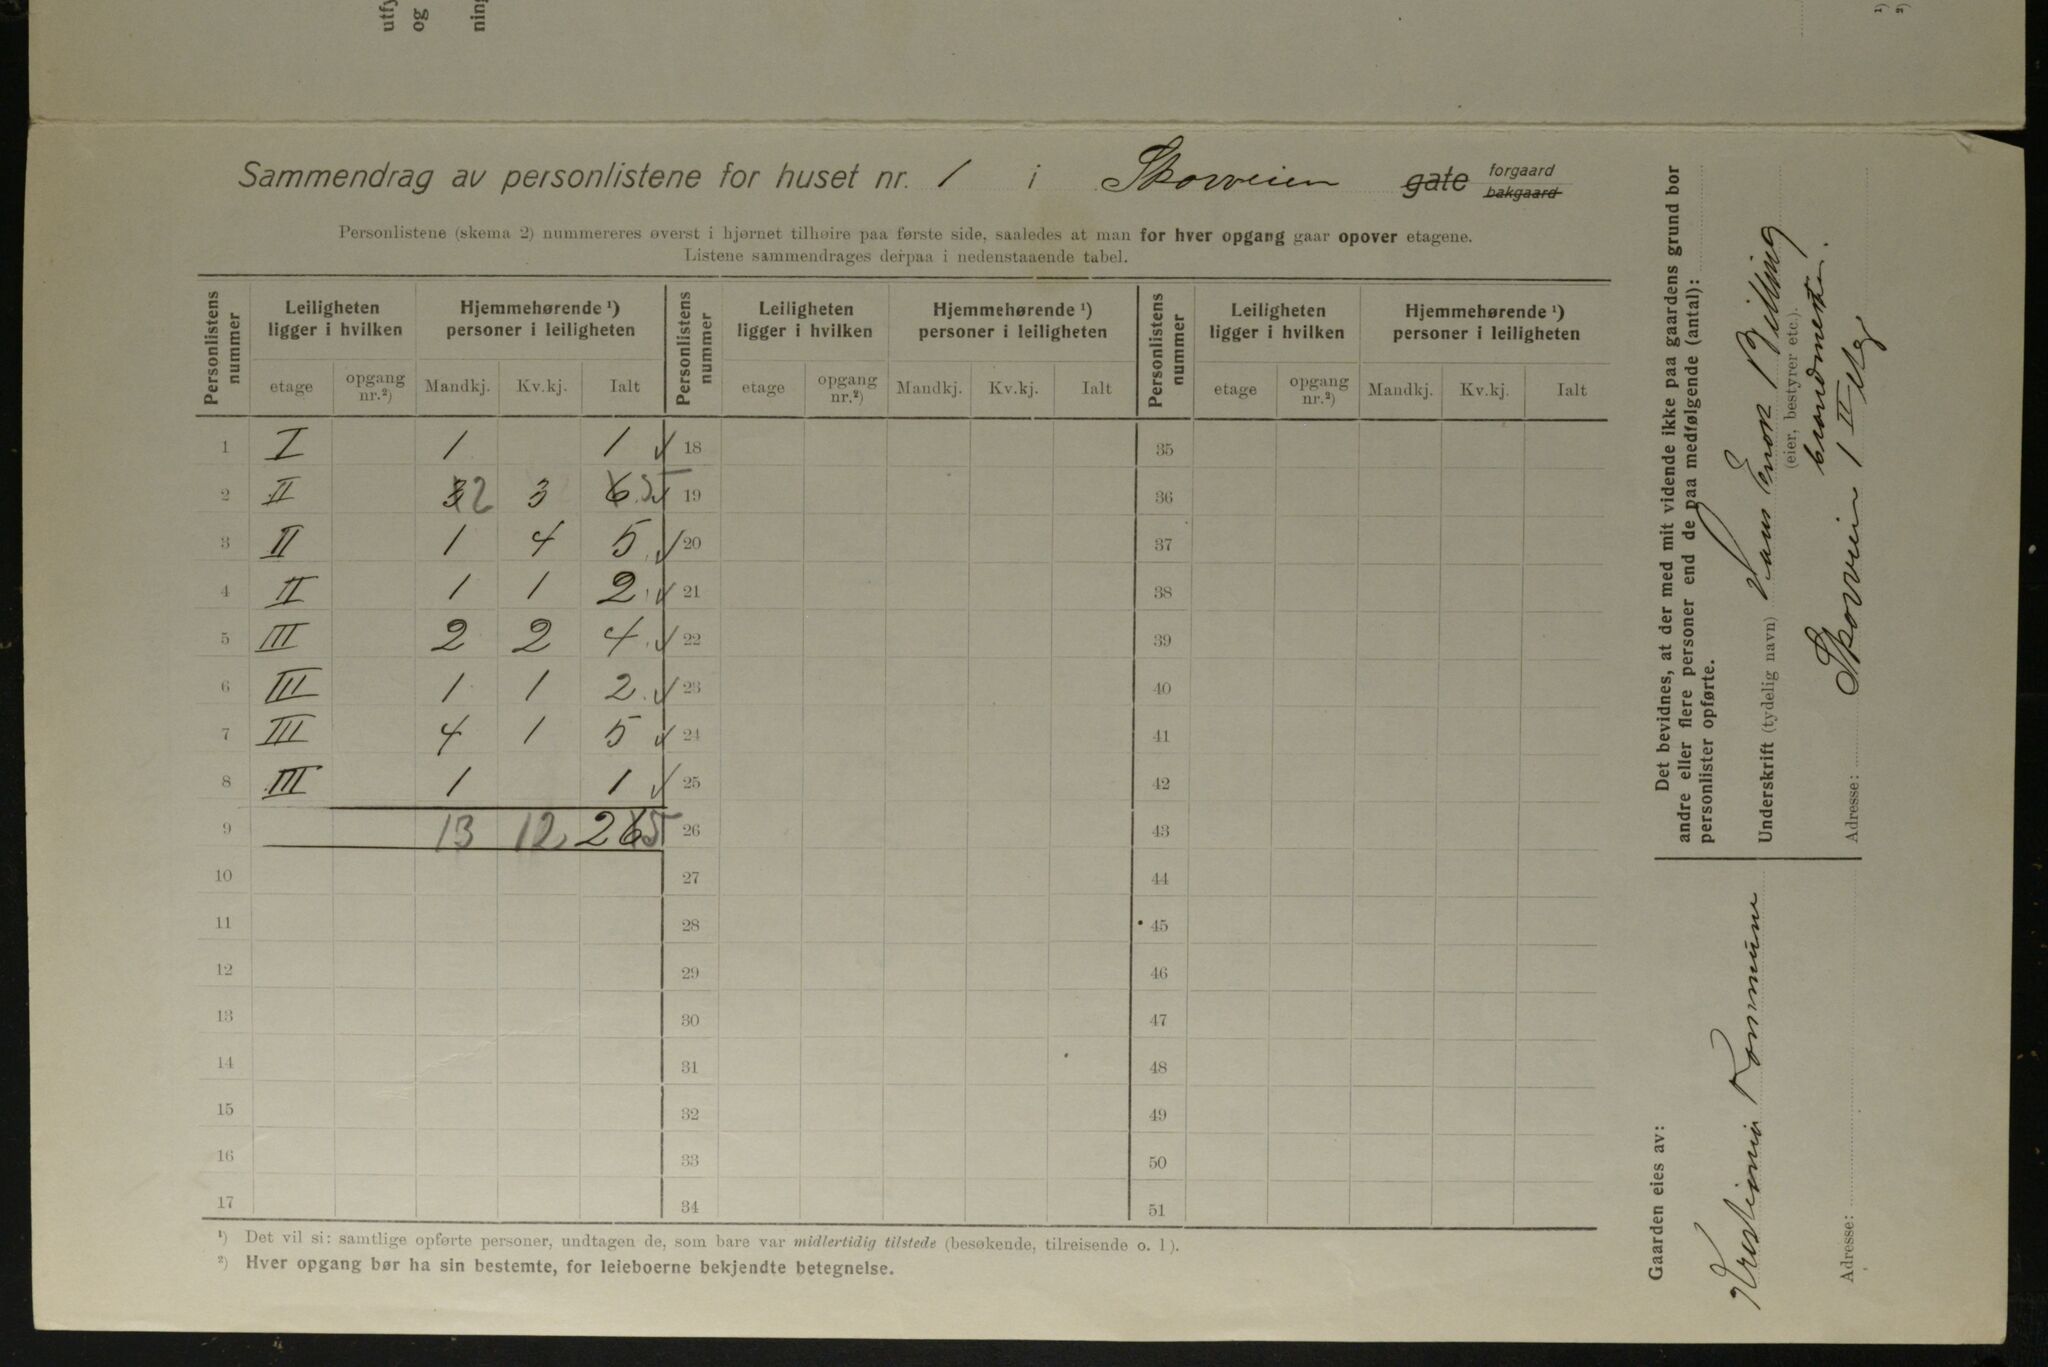 utfy
og
ning
1)
2)
Sammendrag av personlistene for huset nr. 1 i Skovveien gate forgaard bakgaard
Personlistene (skema 2) nummereres øverst i hjørnet tilhøire paa første side, saaledes at man for hver opgang gaar opover etagene.
Listene sammendrages derpaa i nedenstaaende tabel.
Personlistens nummer | Leiligheten ligger i hvilken | Hjemmehørende ¹) personer i leiligheten | Personlistens nummer | Leiligheten ligger i hvilken | Hjemmehørende ¹) personer i leiligheten | Personlistens nummer | Leiligheten ligger i hvilken | Hjemmehørende ¹) personer i leiligheten
etage | opgang nr.²) | Mandkj. | Kv.kj. | Ialt | etage | opgang nr.²) | Mandkj. | Kv.kj. | Ialt | etage | opgang nr.²) | Mandkj. | Kv.kj. | Ialt
1 I 1 1 ✓ 18 35
2 II 3 2 3 6 5 ✓ 19 36
3 II 1 4 5 ✓ 20 37
4 II 1 1 2 ✓ 21 38
5 III 2 2 4 ✓ 22 39
6 III 1 1 2 ✓ 23 40
7 III 4 1 5 ✓ 24 41
8 III 1 1 ✓ 25 42
9 13 12 26 5 26 43
10 27 44
11 28 45
12 29 46
13 30 47
14 31 48
15 32 49
16 33 50
17 34 51
¹) Det vil si: samtlige opførte personer, undtagen de, som bare var midlertidig tilstede (besøkende, tilreisende o. l).
²) Hver opgang bør ha sin bestemte, for leieboerne bekjendte betegnelse.
Det bevidnes, at der med mit vidende ikke paa gaardens grund bor
andre eller flere personer end de paa medfølgende (antal):
personlister opførte.
Underskrift (tydelig navn) Hans Enok Billing
(eier, bestyrer etc.).
brandmester.
Adresse: Skovveien 1 II Etg
Gaarden eies av:
Kristiania Kommune
Adresse: